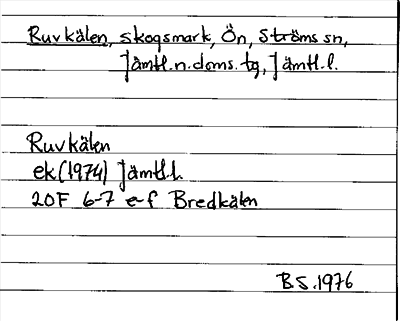 Ruvkälen, skogsmark, Ön, Ströms sn,
Jämtl.n.doms.tg, Jämtl.l.
Ruvkälen
ek(1974) Jämtl.l.
20F 6-7 e-f Bredkälen
BS.1976